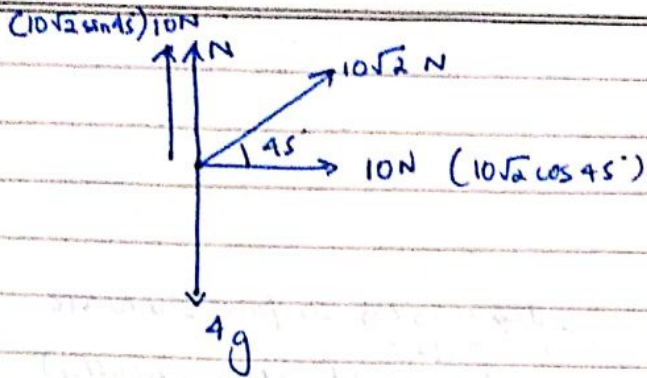 (10√2 sin45) 10N
N
10√2 N
45°
10N (10√2 cos 45°)
4g